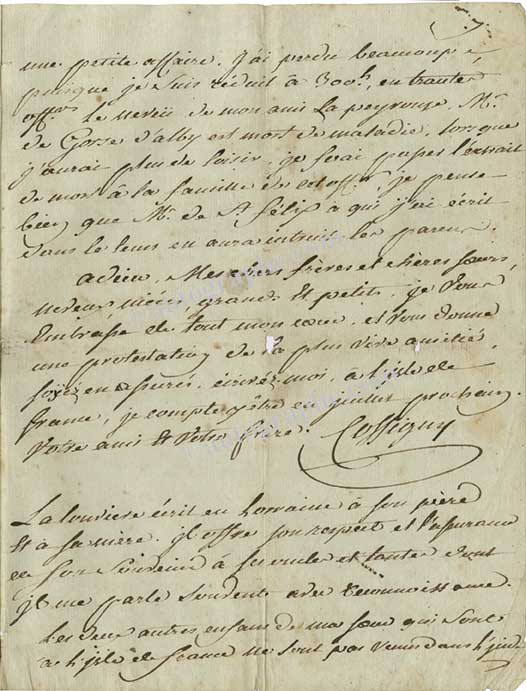 une petite affaire. j'ai perdu beaucoup,
puisque je suis réduit à 300h. en trente
offrs. Le neveu de mon ami Lapeyrouse, Mr.
de Gorse d'alby est mort de maladie, lorsque
j'aurai plus de loisir, je ferai passer l'extrait
de mort à la famille de cet offer. je pense
bien que Mr. de St. félix à qui j'ai écrit
dans le tems en aura instruit les parens.
adieu, Mes chers frères et chères sœurs,
neveux nièces, grands Et petits, je Vous
Embrasse de tout mon cœur, et Vous donne
une protestation de la plus vive amitié,
soyez en assurés, écrivez-moi, à l'isle de
france, je compte y être en juillet prochain.
Votre ami Et Votre frère. Cossigny
La louviere écrit en Lorraine à son père
Et à sa mère. il offre son respect et l'assurance
de son souvenir à ses oncles et tantes dont
il me parle souvent avec reconnoissance.
Les deux autres enfans de ma sœur qui sont
à l'isle de france ne sont pas venus dans l'inde